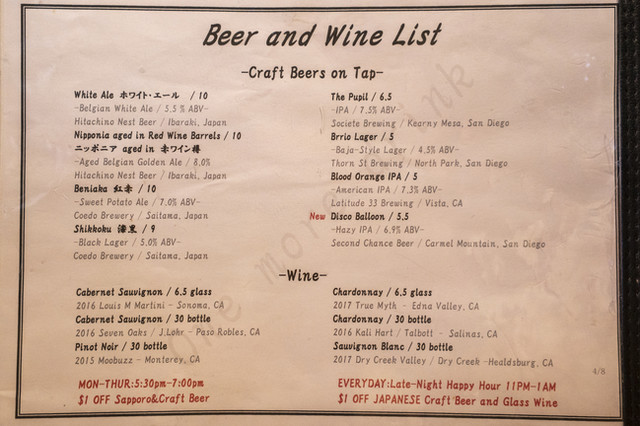 Beer and Wine List
-Craft Beers on Tap-
White Ale ホワイト・エール / 10
-Belgian White Ale / 5.5 % ABV-
Hitachino Nest Beer / Ibaraki, Japan
Nipponia aged in Red Wine Barrels / 10
ニッポニア aged in 赤ワイン樽
-Aged Belgian Golden Ale / 8.0%
Hitachino Nest Beer / Ibaraki, Japan
Beniaka 紅赤 / 10
-Sweet Potato Ale / 7.0% ABV-
Coedo Brewery / Saitama, Japan
Shikkoku 漆黒 / 9
-Black Lager / 5.0% ABV-
Coedo Brewery / Saitama, Japan
The Pupil / 6.5
-IPA / 7.5% ABV-
Societe Brewing / Kearny Mesa, San Diego
Brrio Lager / 5
-Baja-Style Lager / 4.5% ABV-
Thorn St Brewing / North Park, San Diego
Blood Orange IPA / 5
-American IPA / 7.3% ABV-
Latitude 33 Brewing / Vista, CA
New Disco Balloon / 5.5
-Hazy IPA / 6.9% ABV-
Second Chance Beer / Carmel Mountain, San Diego
-Wine-
Cabernet Sauvignon / 6.5 glass
2016 Louis M Martini - Sonoma, CA
Cabernet Sauvignon / 30 bottle
2016 Seven Oaks / J.Lohr - Paso Robles, CA
Pinot Noir / 30 bottle
2015 Moobuzz - Monterey, CA
Chardonnay / 6.5 glass
2017 True Myth - Edna Valley, CA
Chardonnay / 30 bottle
2016 Kali Hart / Talbott - Salinas, CA
Sauvignon Blanc / 30 bottle
2017 Dry Creek Valley / Dry Creek -Healdsburg, CA
4/8
MON-THUR:5:30pm-7:00pm
$1 OFF Sapporo&Craft Beer
EVERYDAY:Late-Night Happy Hour 11PM-1AM
$1 OFF JAPANESE Craft Beer and Glass Wine